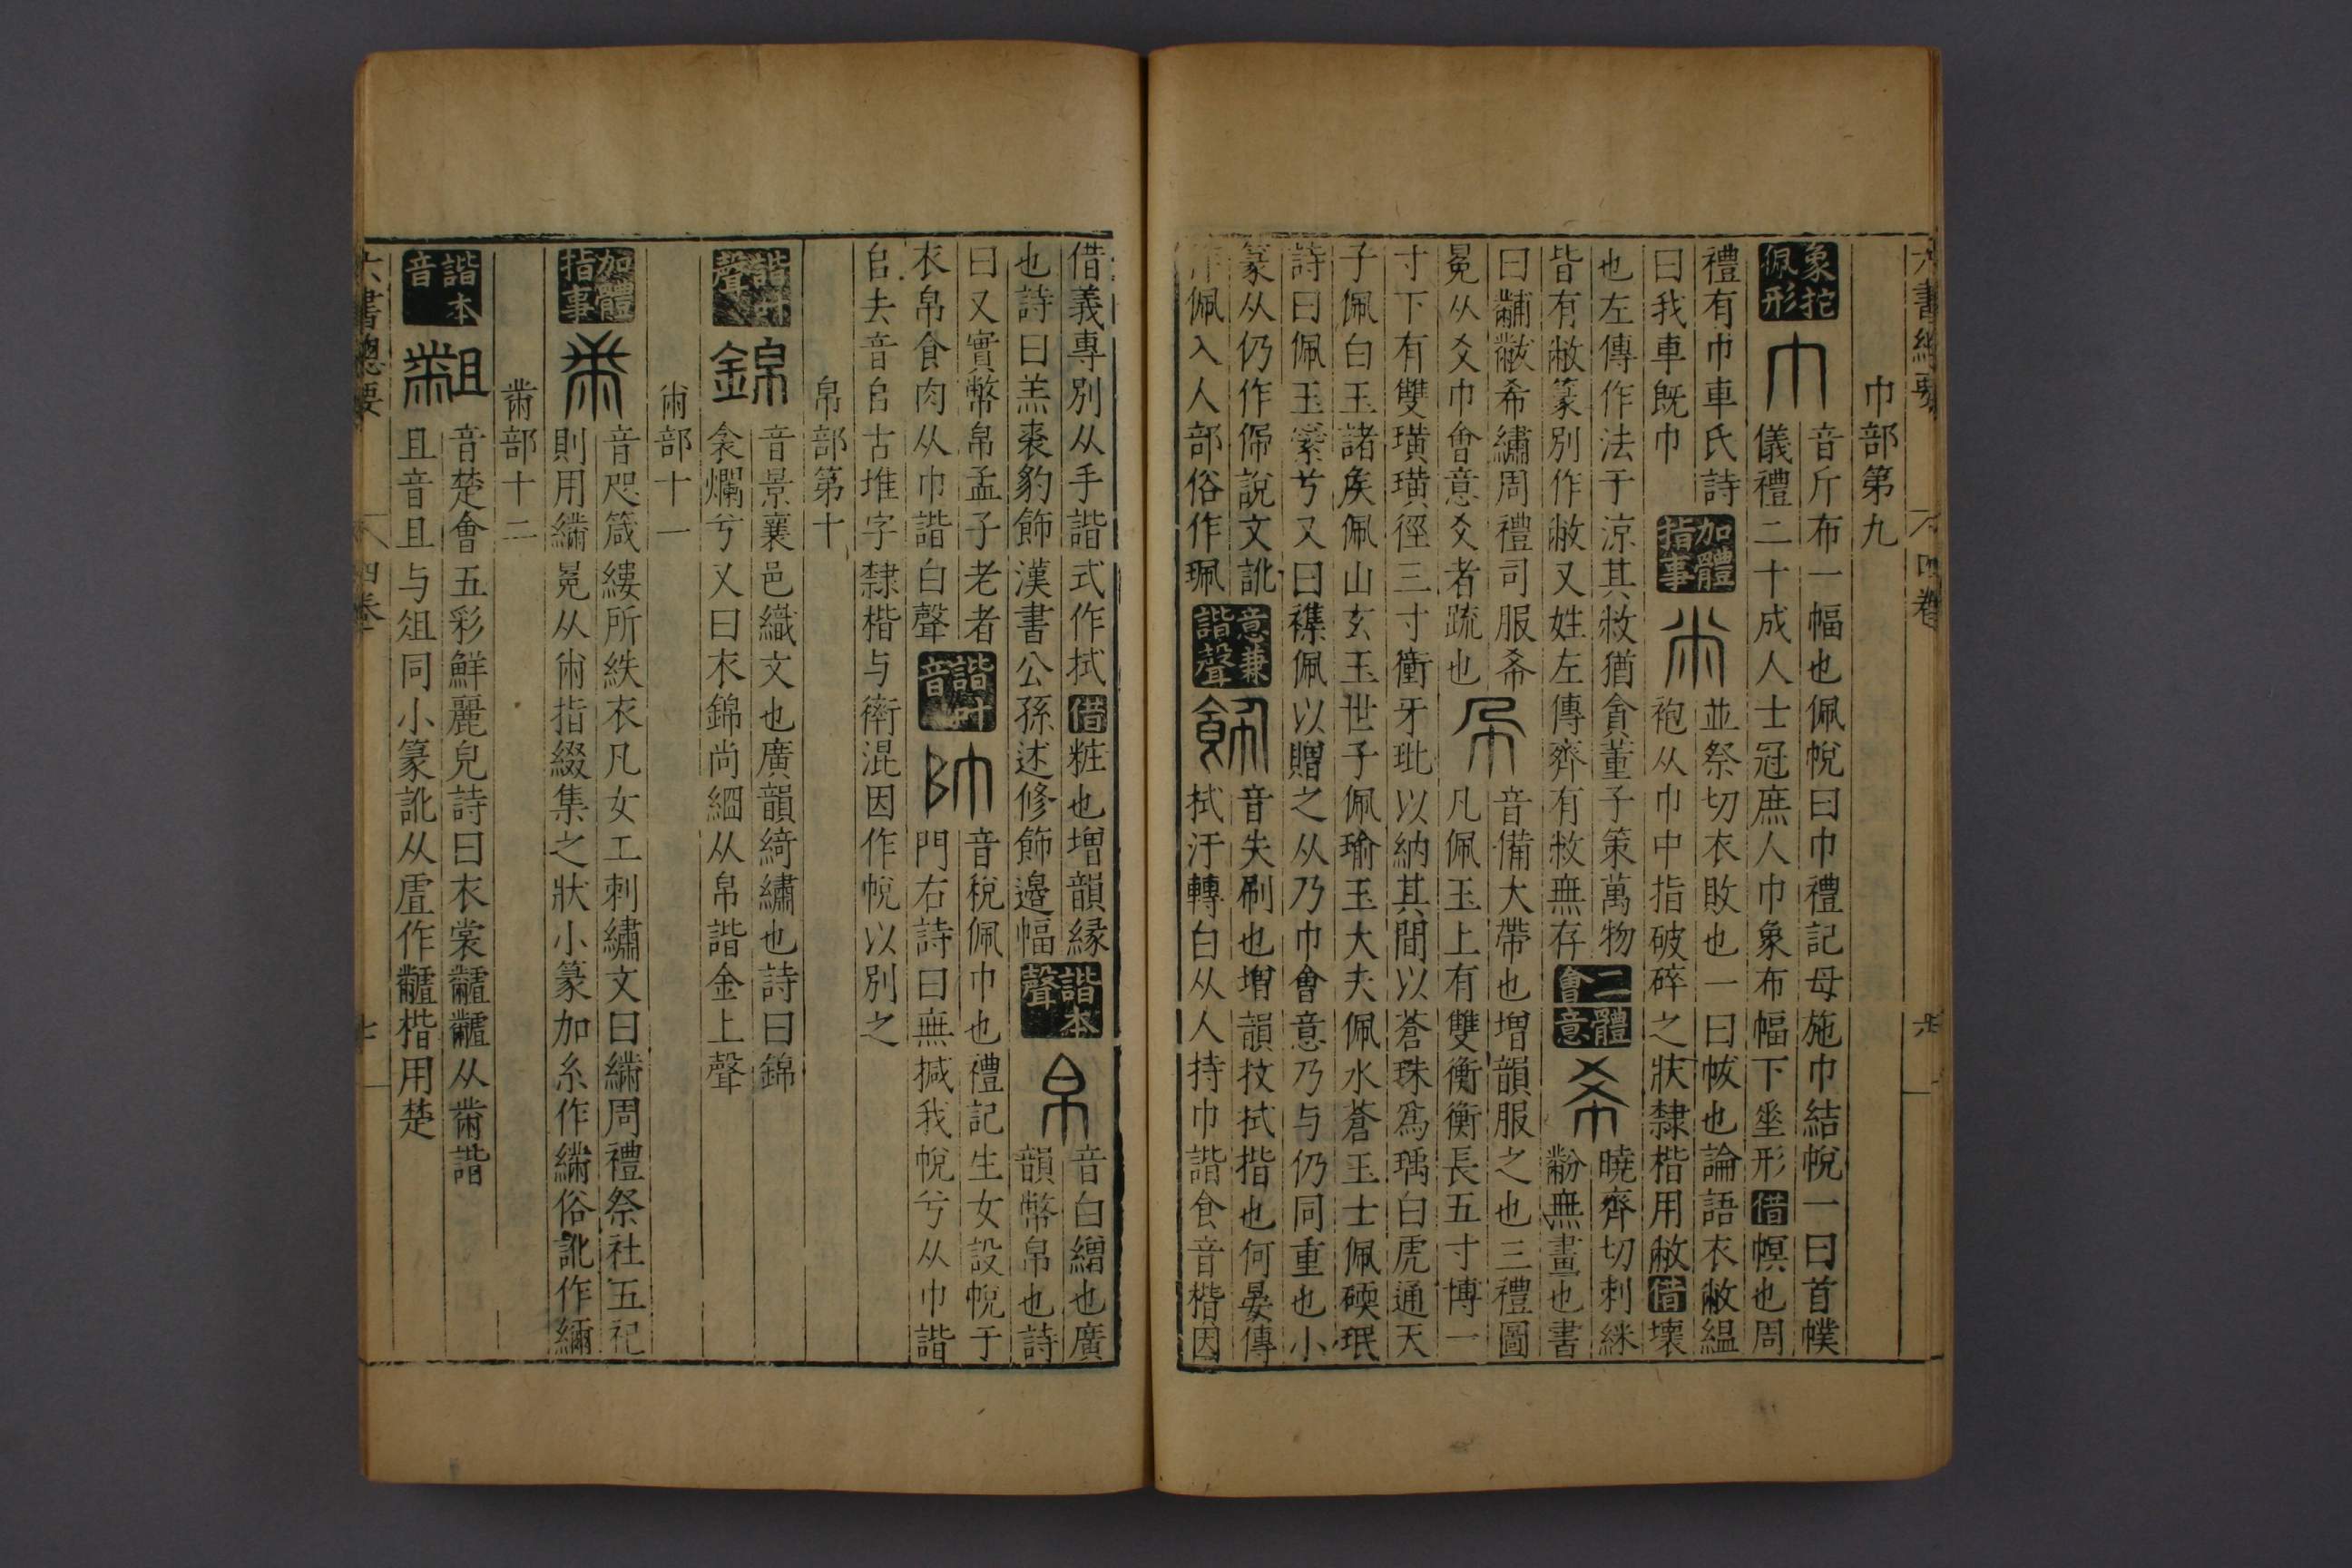 六書總要
四卷
巾部第九
象拕佩形
巾
音斤布一幅也佩帨曰巾禮記母施巾結帨一曰首幞
儀禮二十成人士冠庶人巾象布幅下坙形借幎也周
禮有巾車氏詩
曰我車既巾
加體指事
並祭切衣敗也一曰帗也論語衣敝緼
袍从巾中指破碎之狀隸楷用敝借壞
也左傳作法于涼其敉猶貪董子策萬物
皆有敝篆別作敝又姓左傳齊有敉無存
二體會意
曉齊切刺絲
黺無畫也書
曰黼黻希繡周禮司服希
冕从爻巾會意爻者疏也
音備大帶也增韻服之也三禮圖
凡佩玉上有雙衡衡長五寸博一
寸下有雙璜璜徑三寸衝牙玭以納其間以蒼珠爲瑀白虎通天
子佩白玉諸矦佩山玄玉世子佩瑜玉大夫佩水蒼玉士佩碝珉
詩曰佩玉繠兮又曰襍佩以贈之从乃巾會意乃与仍同重也小
篆从仍作㑉說文訛
作佩入人部俗作珮
意兼諧聲
音失刷也增韻抆拭揩也何晏傳
拭汗轉白从人持巾諧食音楷因
借義專別从手諧式作拭借粧也增韻緣
也詩曰羔裘豹飾漢書公孫述修飾邊幅
諧本聲
帛
音白繒也廣
韻幣帛也詩
曰又實幣帛孟子老者
衣帛食肉从巾諧白聲
諧叶音
帥
音稅佩巾也禮記生女設帨于
門右詩曰無撼我帨兮从巾諧
𠂤去音𠂤古堆字隸楷与衛混因作帨以別之
帛部第十
諧叶聲
錦
音景襄邑織文也廣韻綺繡也詩曰錦
衾爛兮又曰衣錦尚絅从帛諧金上聲
㡀部十一
加體指事
黹
音咫箴縷所紩衣凡女工刺繡文曰黹周禮祭社五祀
則用黹冕从㡀指綴集之狀小篆加糸作𦃘俗訛作繭
黹部十二
諧本音
音楚會五彩鮮麗皃詩曰衣裳黼黼从黹諧
且音且与俎同小篆訛从虘作𪓐楷用楚
六書總要
四卷
七